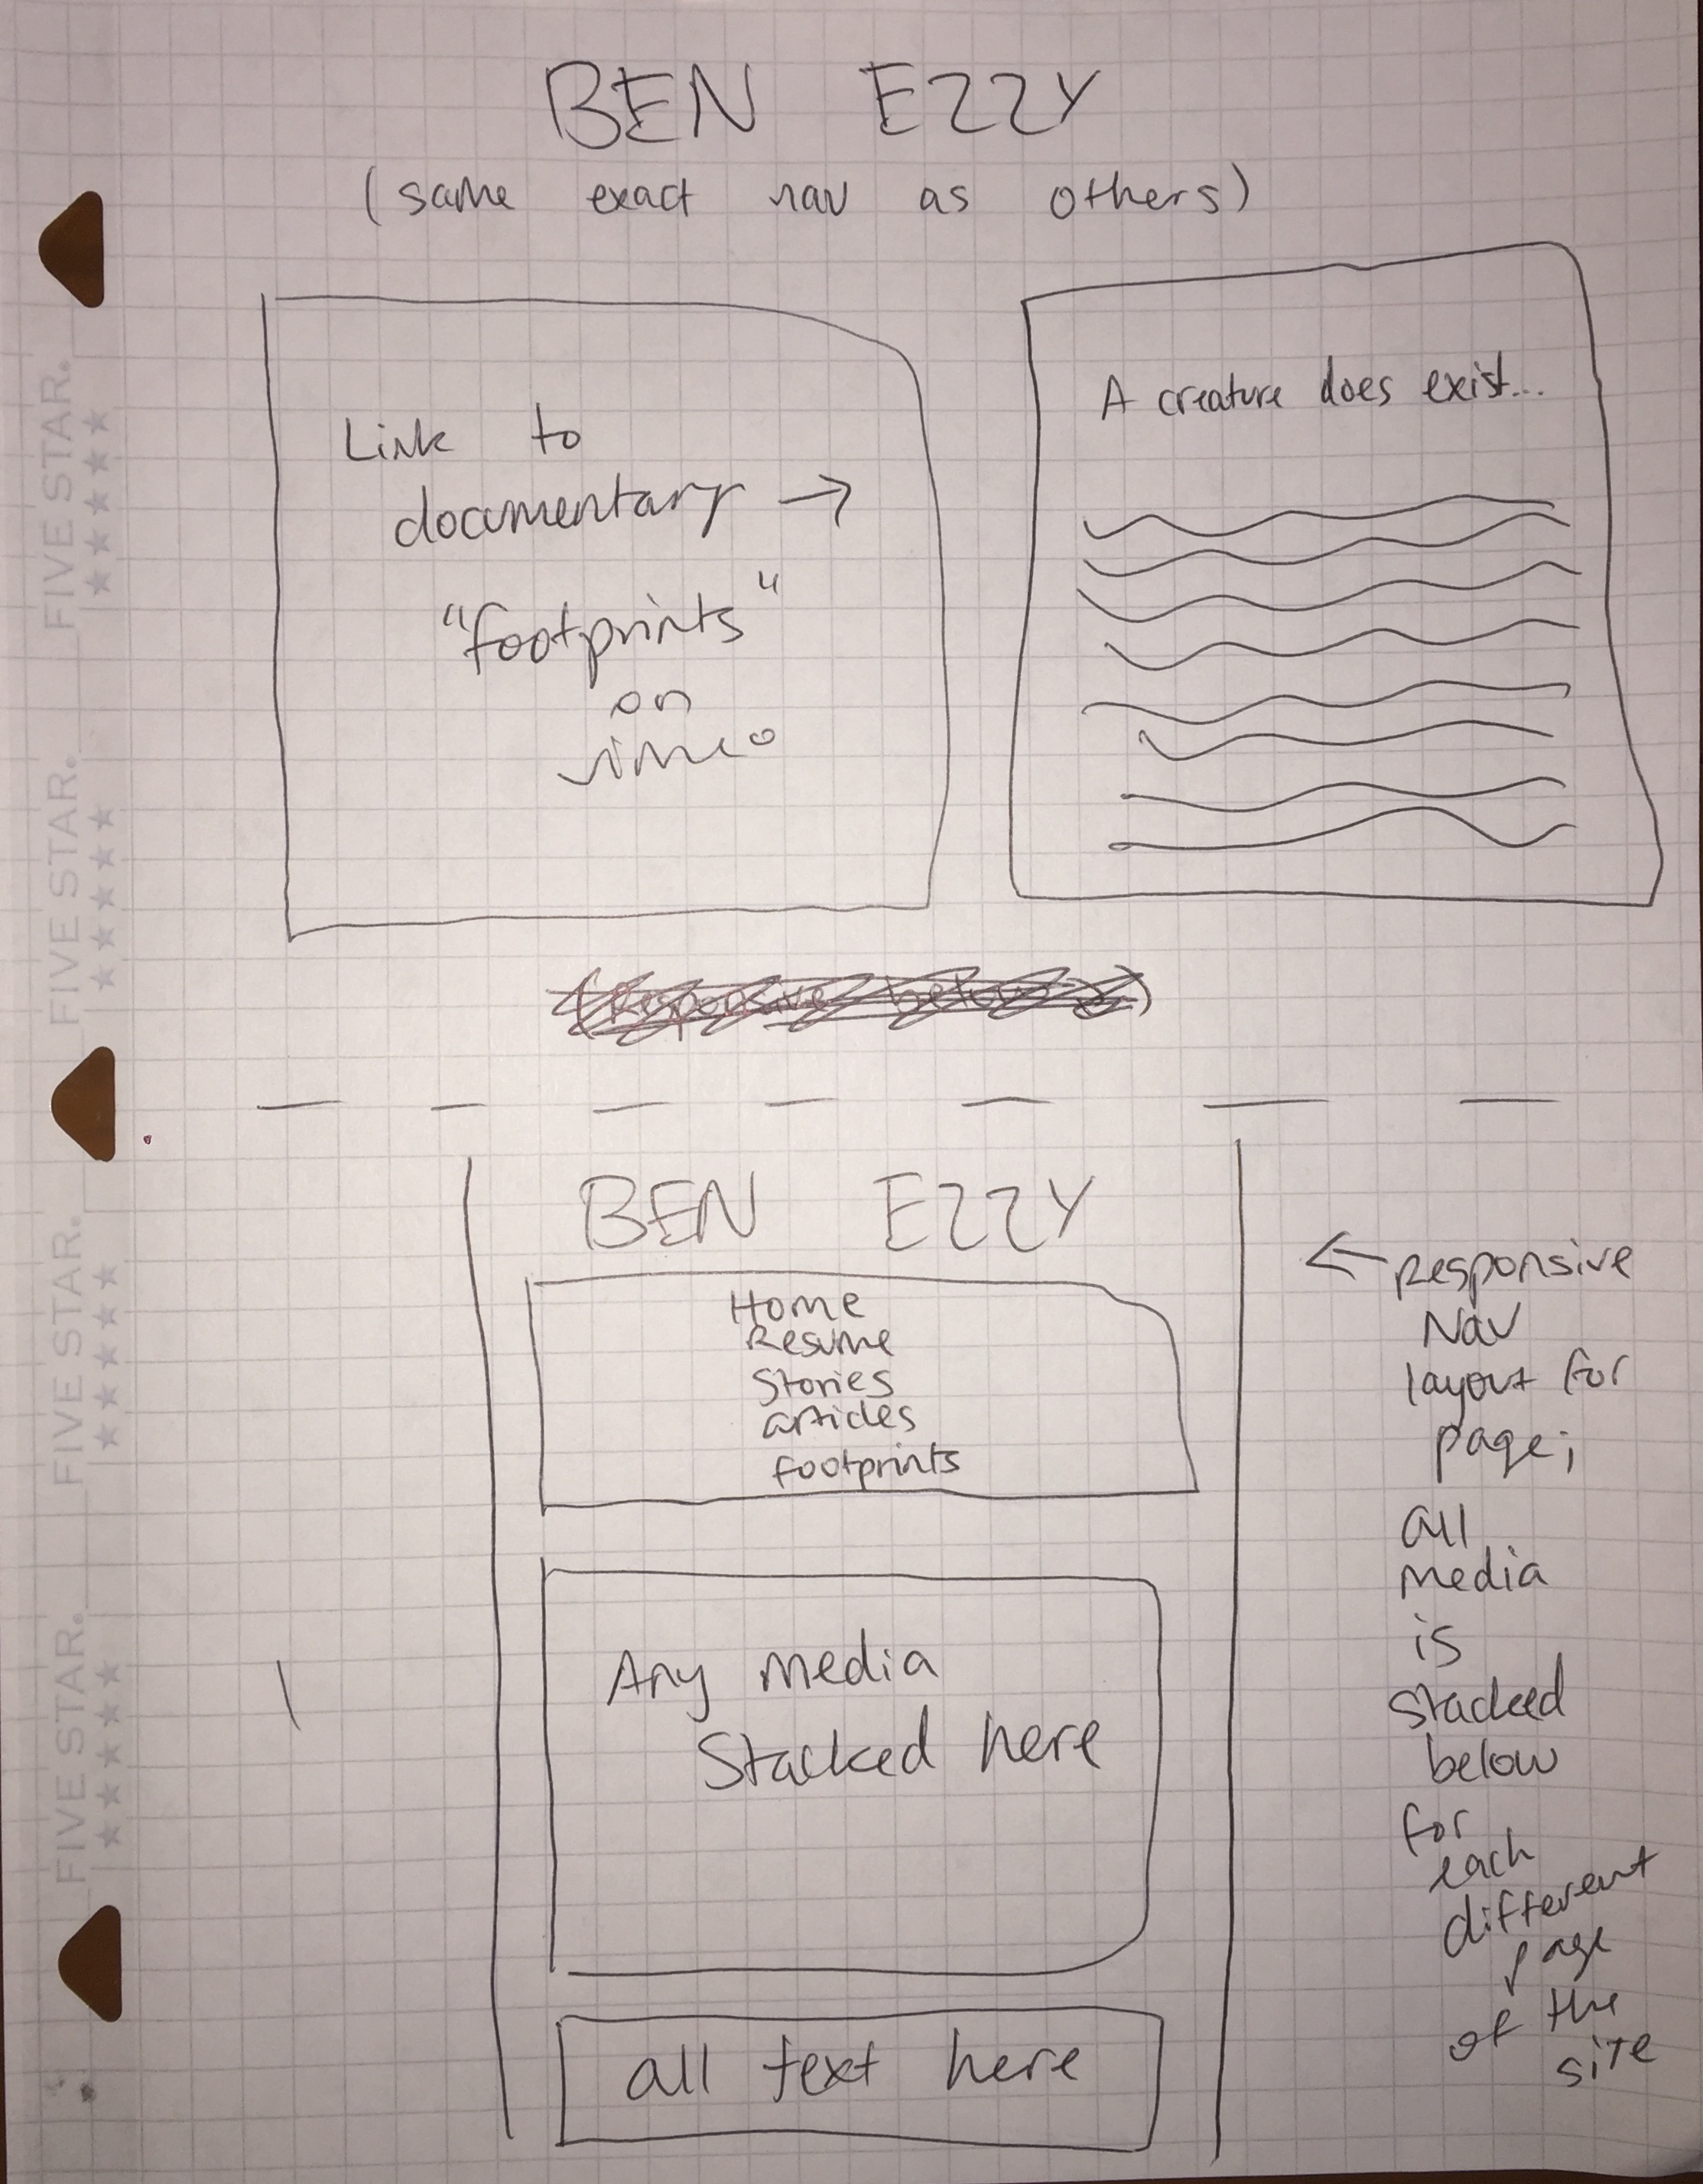 BEN EZZY
(same exact nav as others)
Link to
documentary →
"footprints"
on
vimeo
A creature does exist...
(Responsive below)
BEN EZZY
Home
Resume
Stories
articles
footprints
Any media
Stacked here
all text here
← Responsive
Nav
layout for
page;
all
media
is
stacked
below
for
each
different
page
of the
site
FIVE STAR.
FIVE STAR.
FIVE STAR.
FIVE STAR.